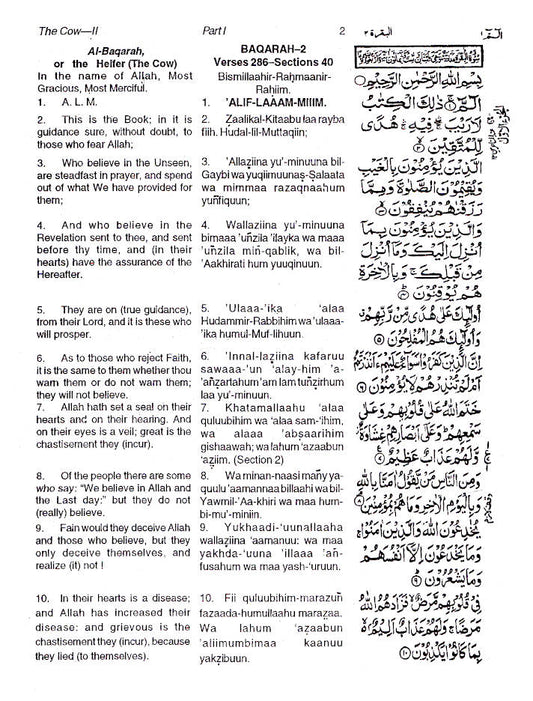 The Cow—II Part I 2 البقرة ٢ الٓمّٓ ١
Al-Baqarah,
or the Heifer (The Cow)
In the name of Allah, Most
Gracious, Most Merciful.
1. A. L. M.
2. This is the Book; in it is
guidance sure, without doubt, to
those who fear Allah;
3. Who believe in the Unseen,
are steadfast in prayer, and spend
out of what We have provided for
them;
4. And who believe in the
Revelation sent to thee, and sent
before thy time, and (in their
hearts) have the assurance of the
Hereafter.
5. They are on (true guidance),
from their Lord, and it is these who
will prosper.
6. As to those who reject Faith,
it is the same to them whether thou
warn them or do not warn them;
they will not believe.
7. Allah hath set a seal on their
hearts and on their hearing. And
on their eyes is a veil; great is the
chastisement they (incur).
8. Of the people there are some
who say: "We believe in Allah and
the Last day:" but they do not
(really) believe.
9. Fain would they deceive Allah
and those who believe, but they
only deceive themselves, and
realize (it) not !
10. In their hearts is a disease;
and Allah has increased their
disease: and grievous is the
chastisement they (incur), because
they lied (to themselves).
BAQARAH–2
Verses 286–Sections 40
Bismillaahir-Raḥmaanir-
Raḥiim.
1. 'ALIF-LAAAM-MIIIM.
2. Ẕaalikal-Kitaabu laa rayba
fiih. Hudal-lil-Muttaqiin;
3. 'Allaẕiina yu'-minuuna bil-
Gaybi wa yuqiimuunaṣ-Ṣalaata
wa mimmaa razaqnaahum
yuñfiquun;
4. Wallaẕiina yu'-minuuna
bimaaa 'uñzila 'ilayka wa maaa
'uñzila miñ-qablik, wa bil-
'Aakhirati hum yuuqinuun.
5. 'Ulaaa-'ika 'alaa
Hudammir-Rabbihim wa 'ulaaa-
'ika humul-Muf-liḥuun.
6. 'Innal-laẕiina kafaruu
sawaaa-'un 'alay-him 'a-
'añẕartahum 'am lam tuñẕirhum
laa yu'-minuun.
7. Khatamallaahu 'alaa
quluubihim wa 'alaa sam-'ihim,
wa alaaa 'abṣaarihim
gishaawah; wa lahum 'aẕaabun
'aẓiim. (Section 2)
8. Wa minan-naasi mañy ya-
quulu 'aamannaa billaahi wa bil-
Yawmil-'Aa-khiri wa maa hum-
bi-mu'-miniin.
9. Yukhaadi-'uunallaaha
wallaẕiina 'aamanuu: wa maa
yakhda-'uuna 'illaaa 'añ-
fusahum wa maa yash-'uruun.
10. Fii quluubihim-maraẓuñ
fazaada-humullaahu maraẓaa.
Wa lahum 'aẕaabun
'aliimumbimaa kaanuu
yakẕibuun.
بِسْمِ اللّٰهِ الرَّحْمٰنِ الرَّحِيْمِ
الٓمّٓ ۚ ذٰلِكَ الْكِتٰبُ
لَا رَيْبَ ۛ فِيْهِ ۛ هُدًى
لِّلْمُتَّقِيْنَ ۝٢
الَّذِيْنَ يُؤْمِنُوْنَ بِالْغَيْبِ
وَيُقِيْمُوْنَ الصَّلٰوةَ وَمِمَّا
رَزَقْنٰهُمْ يُنْفِقُوْنَ ۝٣
وَالَّذِيْنَ يُؤْمِنُوْنَ بِمَآ
اُنْزِلَ اِلَيْكَ وَمَآ اُنْزِلَ
مِنْ قَبْلِكَ ۚ وَبِالْاٰخِرَةِ
هُمْ يُوْقِنُوْنَ ۝٤
اُولٰٓئِكَ عَلٰى هُدًى مِّنْ رَّبِّهِمْ ۗ
وَاُولٰٓئِكَ هُمُ الْمُفْلِحُوْنَ ۝٥
اِنَّ الَّذِيْنَ كَفَرُوْا سَوَآءٌ عَلَيْهِمْ ءَاَنْذَرْتَهُمْ
اَمْ لَمْ تُنْذِرْهُمْ لَا يُؤْمِنُوْنَ ۝٦
خَتَمَ اللّٰهُ عَلٰى قُلُوْبِهِمْ وَعَلٰى
سَمْعِهِمْ ۗ وَعَلٰٓى اَبْصَارِهِمْ غِشَاوَةٌ ۖ
وَّلَهُمْ عَذَابٌ عَظِيْمٌ ۝٧
وَمِنَ النَّاسِ مَنْ يَّقُوْلُ اٰمَنَّا بِاللّٰهِ
وَبِالْيَوْمِ الْاٰخِرِ وَمَا هُمْ بِمُؤْمِنِيْنَ ۝٨
يُخٰدِعُوْنَ اللّٰهَ وَالَّذِيْنَ اٰمَنُوْا ۚ
وَمَا يَخْدَعُوْنَ اِلَّآ اَنْفُسَهُمْ
وَمَا يَشْعُرُوْنَ ۝٩
فِيْ قُلُوْبِهِمْ مَّرَضٌ ۙ فَزَادَهُمُ اللّٰهُ
مَرَضًا ۚ وَلَهُمْ عَذَابٌ اَلِيْمٌ ۢ ۙ
بِمَا كَانُوْا يَكْذِبُوْنَ ۝١٠